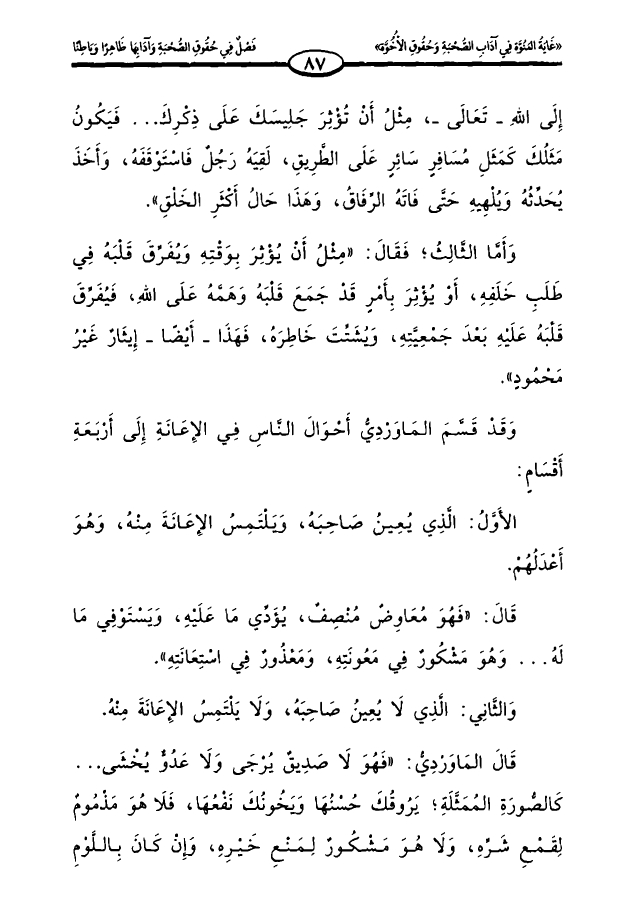 «غَايَةُ المُنُوَّة فِي آدَابِ الصُّحْبَةِ وَحُقُوقِ الأُخُوَّة»
٨٧
فَصْلٌ فِي حُقُوقِ الصُّحْبَةِ وَآدَابِهَا ظَاهِرًا وَبَاطِنًا
إِلَى اللهِ ـ تَعَالَى ـ، مِثْلُ أَنْ تُؤْثِرَ جَلِيسَكَ عَلَى ذِكْرِكَ... فَيَكُونُ
مَثَلُكَ كَمَثَلِ مُسَافِرٍ سَائِرٍ عَلَى الطَّرِيقِ، لَقِيَهُ رَجُلٌ فَاسْتَوْقَفَهُ، وَأَخَذَ
يُحَدِّثُهُ وَيُلْهِيهِ حَتَّى فَاتَهُ الرِّفَاقُ، وَهَذَا حَالُ أَكْثَرِ الخَلْقِ».
وَأَمَّا الثَّالِثُ؛ فَقَالَ: «مِثْلُ أَنْ يُؤْثِرَ بِوَقْتِهِ وَيُفَرِّقَ قَلْبَهُ فِي
طَلَبِ خَلَفِهِ، أَوْ يُؤْثِرَ بِأَمْرٍ قَدْ جَمَعَ قَلْبَهُ وَهَمَّهُ عَلَى اللهِ، فَيُفَرِّقَ
قَلْبَهُ عَلَيْهِ بَعْدَ جَمْعِيَّتِهِ، وَيُشَتِّتَ خَاطِرَهُ، فَهَذَا ـ أَيْضًا ـ إِيثَارٌ غَيْرُ
مَحْمُودٍ».
وَقَدْ قَسَّمَ المَاوَرْدِيُّ أَحْوَالَ النَّاسِ فِي الإِعَانَةِ إِلَى أَرْبَعَةِ
أَقْسَامٍ:
الأَوَّلُ: الَّذِي يُعِينُ صَاحِبَهُ، وَيَلْتَمِسُ الإِعَانَةَ مِنْهُ، وَهُوَ
أَعْدَلُهُمْ.
قَالَ: «فَهُوَ مُعَاوِضٌ مُنْصِفٌ، يُؤَدِّي مَا عَلَيْهِ، وَيَسْتَوْفِي مَا
لَهُ... وَهُوَ مَشْكُورٌ فِي مَعُونَتِهِ، وَمَعْذُورٌ فِي اسْتِعَانَتِهِ».
وَالثَّانِي: الَّذِي لَا يُعِينُ صَاحِبَهُ، وَلَا يَلْتَمِسُ الإِعَانَةَ مِنْهُ.
قَالَ المَاوَرْدِيُّ: «فَهُوَ لَا صَدِيقٌ يُرْجَى وَلَا عَدُوٌّ يُخْشَى...
كَالصُّورَةِ المُمَثَّلَةِ؛ يَرُوقُكَ حُسْنُهَا وَيَخُونُكَ نَفْعُهَا، فَلَا هُوَ مَذْمُومٌ
لِقَمْعِ شَرِّهِ، وَلَا هُوَ مَشْكُورٌ لِمَنْعِ خَيْرِهِ، وَإِنْ كَانَ بِاللَّوْمِ